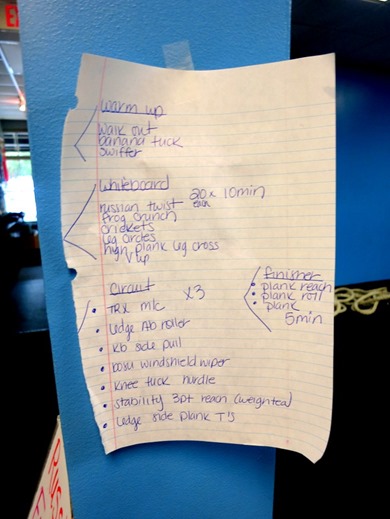 E
Warm up
Walk out
banana tuck
Swiffer
Whiteboard
20 x 10min
each
russian twist
frog crunch
crickets
leg circles
high plank leg cross
V up
Circuit
x3
TRX mtc
Ledge Ab roller
Kb side pull
bosu windshield wiper
Knee tuck hurdle
Stability 3pt reach (weighted)
Ledge side plank T's
finisher
plank reach
plank roll
plank
5min